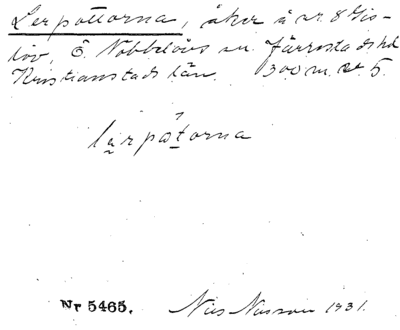 Lerpottorna, åker å nr 8 Gis-
löv, Ö. Nobbelövs sn. Järrestads hd
Kristianstads län. 300 m. 5.
lerpåtorna
Nr 5465. Nils Nilsson 1931.